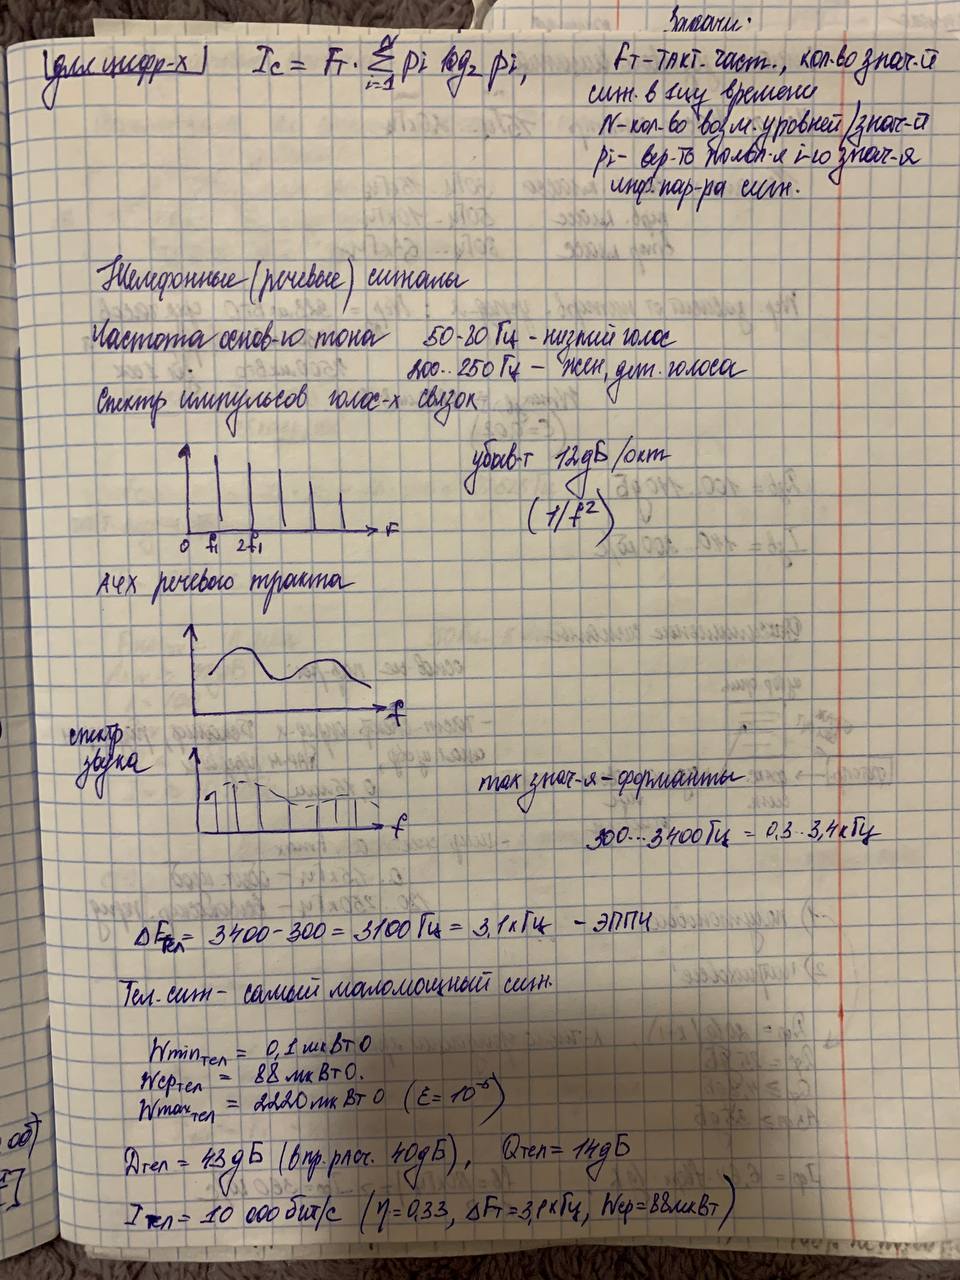 Задачи:
[для цифр-х] Ic = Fт · Σ pi log2 pi,
N
i=1
Fт - такт. част., кол-во знач-й
сиг. в 1цу времени
N - кол-во возм. уровней/знач-й
pi - вер-ть появл-я i-го знач-я
инф. пар-ра сиг.
Телефонные (речевые) сигналы
Частота основ-го тона 50-80 Гц - низкий голос
200..250 Гц - жен, дет. голоса
Спектр импульсов голос-х связок
убыв-т 12дБ/окт
(1/f²)
0 f1 2f1 F
АЧХ речевого тракта
f
спектр
звука
f
max знач-я - форманты
300...3400Гц = 0,3..3,4кГц
ΔFтел = 3400-300 = 3100Гц = 3,1кГц - ЭППЧ
Тел. сиг - самый маломощный сиг.
Wminтел = 0,1мкВт0
Wсртел = 88мкВт0.
Wmaxтел = 2220мкВт0 (ε=10⁻⁵)
Dтел = 43дБ (в пр. расч. 40дБ), Qтел = 14дБ
Iтел = 10 000бит/с (η=0,33, ΔFт=3,1кГц, Wср=88мкВт)